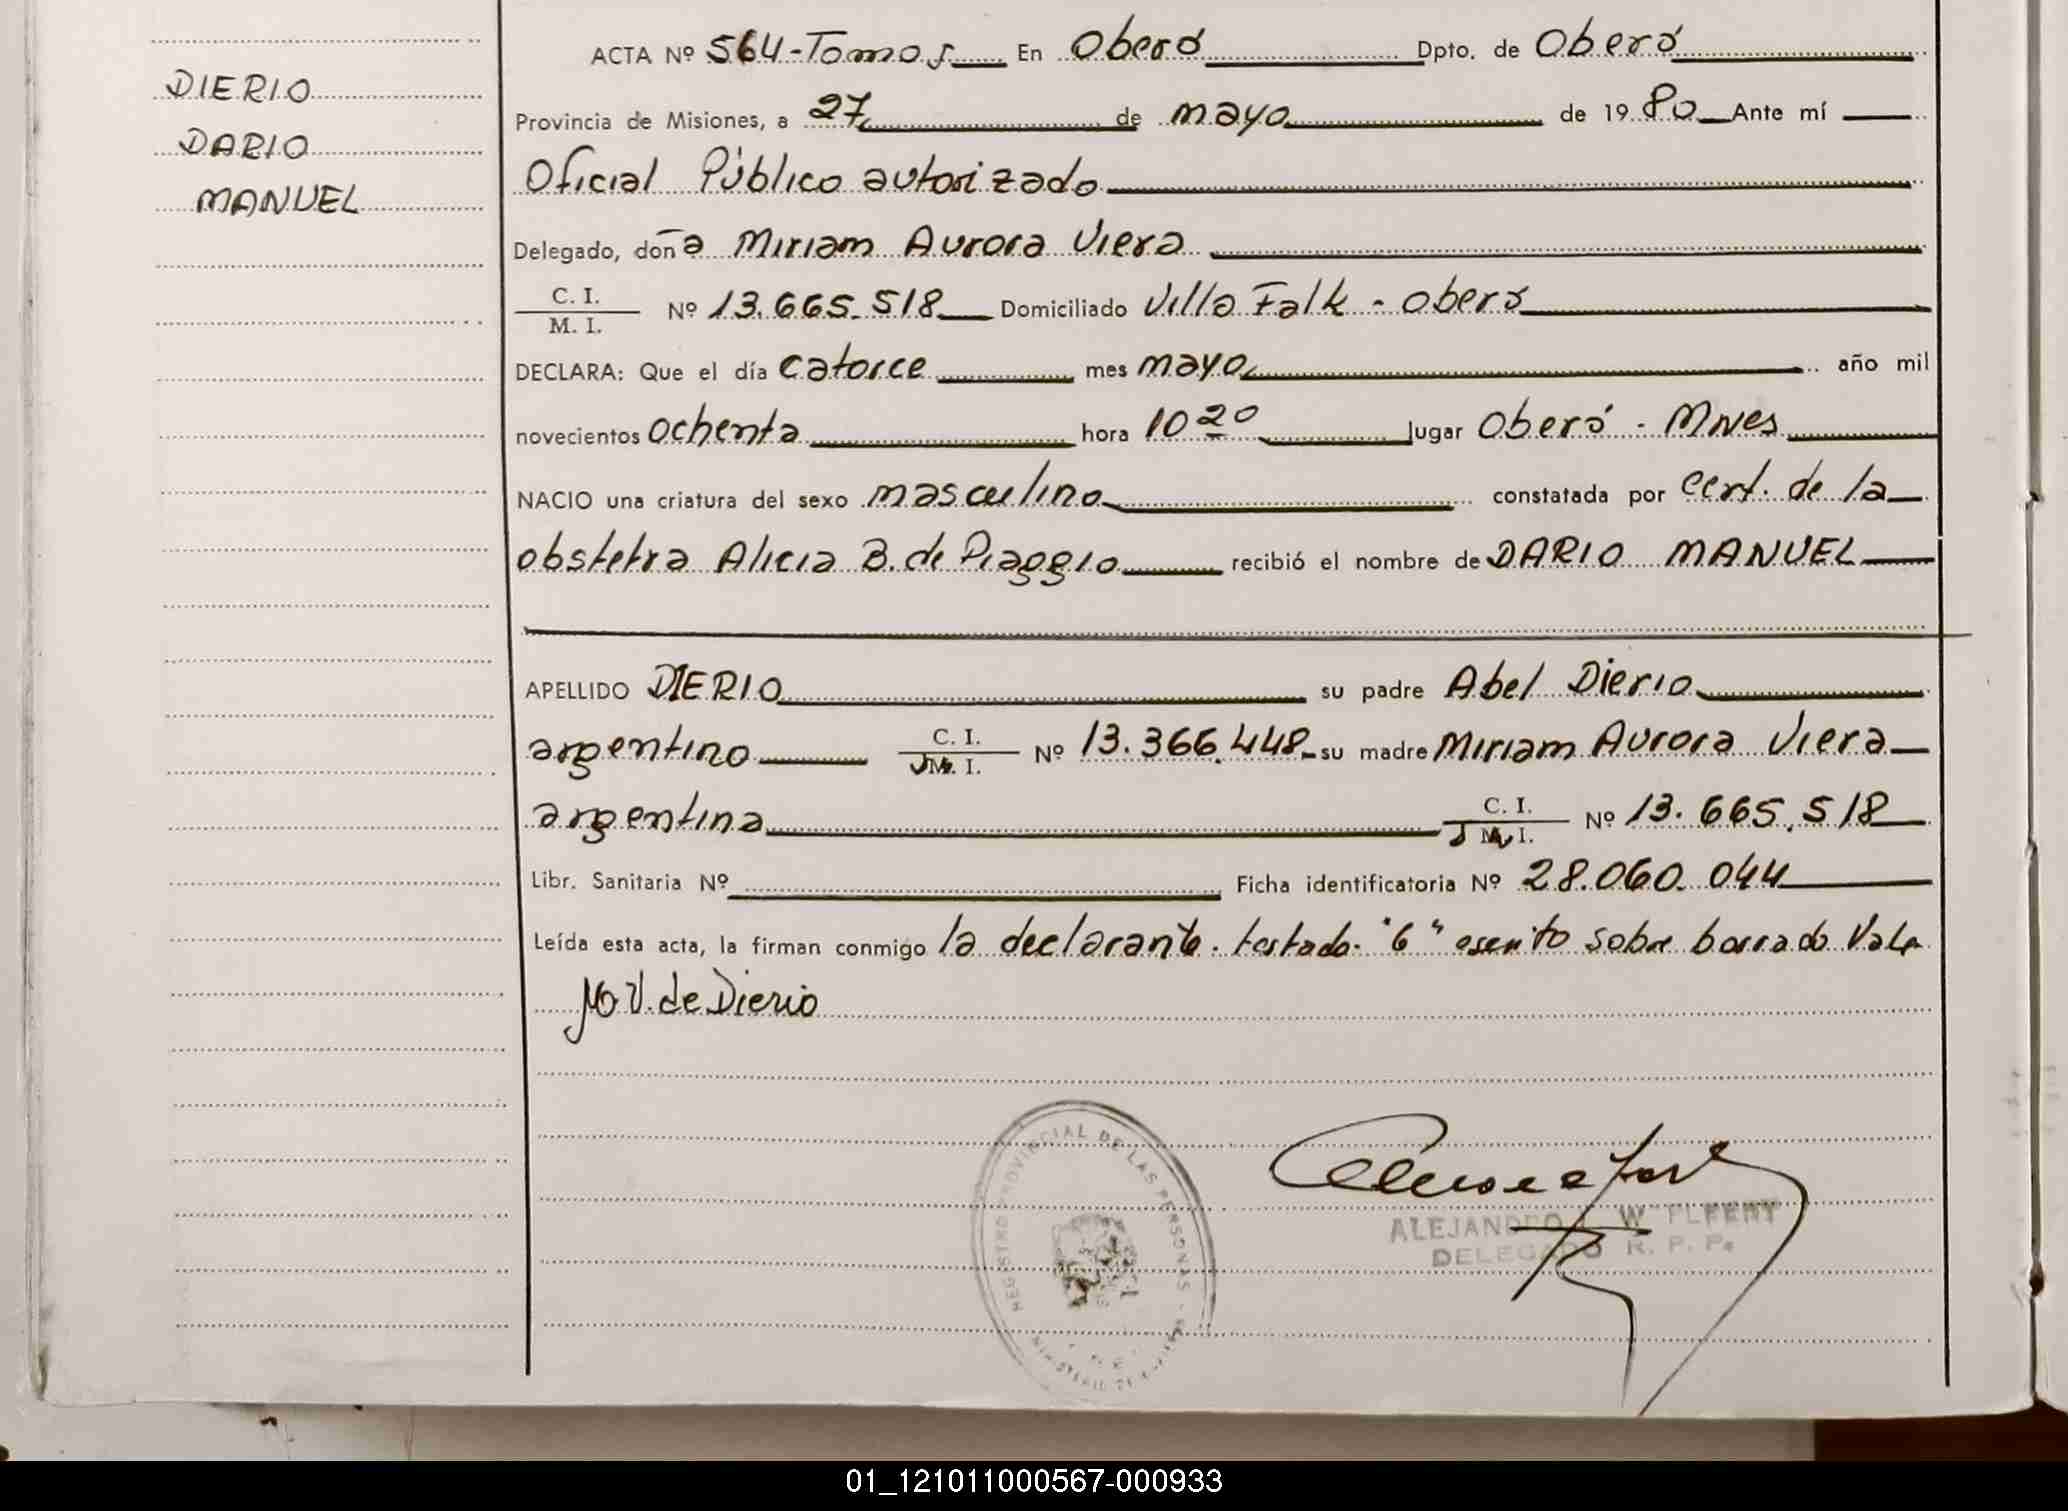 DIERIO
DARIO
MANUEL
ACTA Nº 564-Tomo 5 En Oberá Dpto. de Oberá
Provincia de Misiones, a 27 de mayo de 1980 Ante mí
Oficial Público autorizado
Delegado, doña Miriam Aurora Viera
C. I.
M. I. Nº 13.665.518 Domiciliado Villa Falk - Oberá
DECLARA: Que el día catorce mes mayo año mil
novecientos ochenta hora 10 20 lugar Oberá - Mnes
NACIO una criatura del sexo masculino constatada por cert. de la
obstetra Alicia B. de Piaggio recibió el nombre de DARIO MANUEL
APELLIDO DIERIO su padre Abel Dierio
argentino C. I. M. I. Nº 13.366.448 su madre Miriam Aurora Viera
argentina C. I. M. I. Nº 13.665.518
Libr. Sanitaria Nº Ficha identificatoria Nº 28.060.044
Leída esta acta, la firman conmigo la declarante. testado. "6" escrito sobre borrado Vale
M V. de Dierio
REGISTRO PROVINCIAL DE LAS PERSONAS
ALEJANDRO W
DELEGADO R. P. P.
01_121011000567-000933